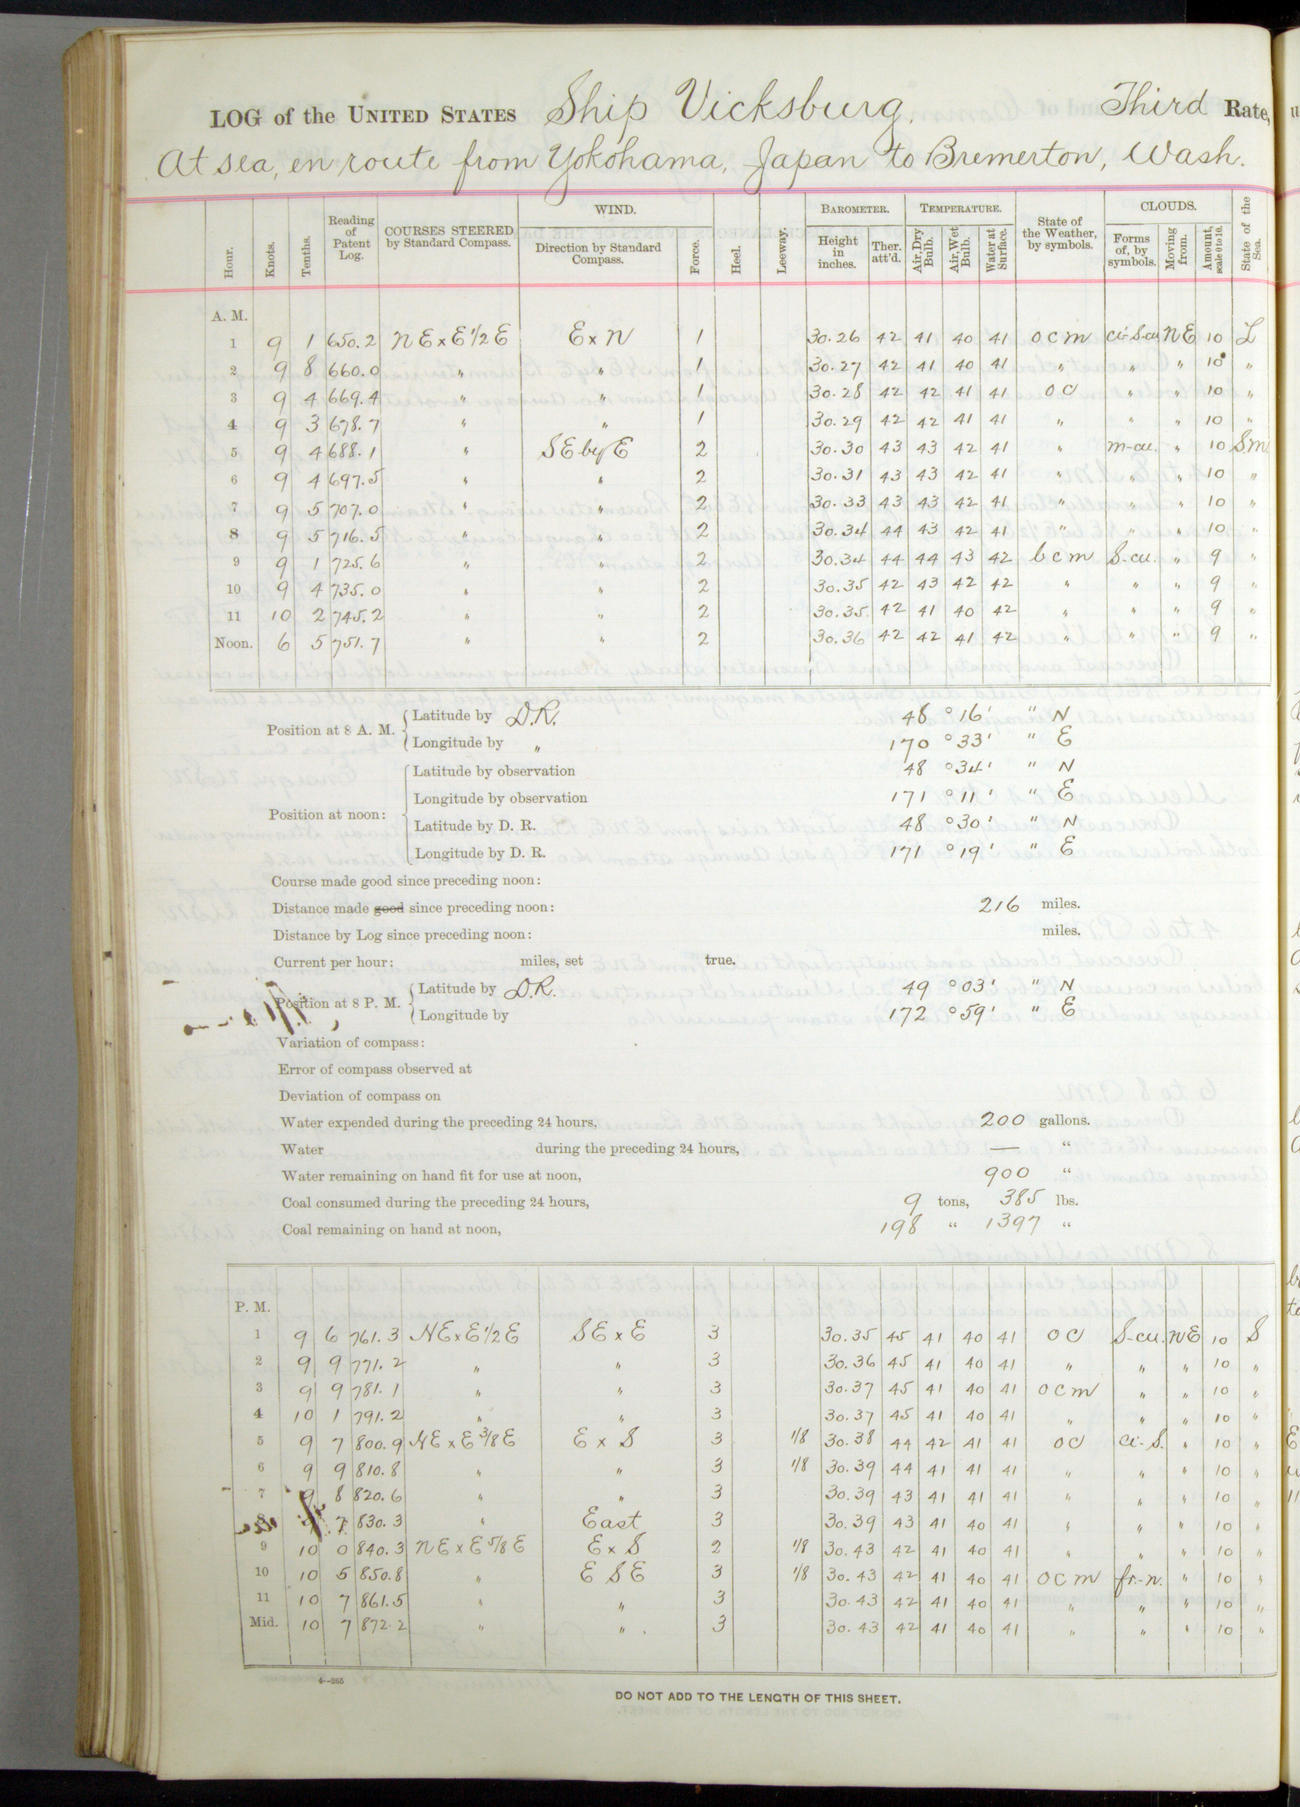 LOG of the UNITED STATES Ship Vicksburg, Third Rate,
At sea, en route from Yokohama, Japan to Bremerton, Wash.
Hour. Knots. Tenths. Reading of Patent Log. COURSES STEERED by Standard Compass. WIND. Direction by Standard Compass. Force. Heel. Leeway. BAROMETER. Height in inches. Ther. att'd. TEMPERATURE. Air, Dry Bulb. Air, Wet Bulb. Water at Surface. State of the Weather, by symbols. CLOUDS. Forms of, by symbols. Moving from. Amount, scale 0 to 10. State of the Sea.
A. M.
1 9 1 650.2 NE x E 1/2 E E x N 1 30.26 42 41 40 41 o c m ci-S-cu NE 10 L
2 9 8 660.0 " " 1 30.27 42 41 40 41 " " " 10 "
3 9 4 669.4 " " 1 30.28 42 42 41 41 o c " " 10 "
4 9 3 678.7 " " 1 30.29 42 42 41 41 " " " 10 "
5 9 4 688.1 " SE by E 2 30.30 43 43 42 41 " m-cu. " 10 Sm
6 9 4 697.5 " " 2 30.31 43 43 42 41 " " " 10 "
7 9 5 707.0 " " 2 30.33 43 43 42 41 " " " 10 "
8 9 5 716.5 " " 2 30.34 44 43 42 41 " " " 10 "
9 9 1 725.6 " " 2 30.34 44 44 43 42 b c m S-cu. " 9 "
10 9 4 735.0 " " 2 30.35 42 43 42 42 " " " 9 "
11 10 2 745.2 " " 2 30.35 42 41 40 42 " " " 9 "
Noon. 6 5 751.7 " " 2 30.36 42 42 41 42 " " " 9 "
Position at 8 A. M. Latitude by D.R. 48 ° 16 ' " N
Longitude by " 170 ° 33 ' " E
Position at noon: Latitude by observation 48 ° 34 ' " N
Longitude by observation 171 ° 11 ' " E
Latitude by D. R. 48 ° 30 ' " N
Longitude by D. R. 171 ° 19 ' " E
Course made good since preceding noon:
Distance made good since preceding noon: 216 miles.
Distance by Log since preceding noon: miles.
Current per hour: miles, set true.
Position at 8 P. M. Latitude by D.R. 49 ° 03 ' " N
Longitude by 172 ° 59 ' " E
Variation of compass:
Error of compass observed at
Deviation of compass on
Water expended during the preceding 24 hours, 200 gallons.
Water during the preceding 24 hours, — "
Water remaining on hand fit for use at noon, 900 "
Coal consumed during the preceding 24 hours, 9 tons, 385 lbs.
Coal remaining on hand at noon, 198 " 1397 "
P. M.
1 9 6 761.3 NE x E 1/2 E SE x E 3 30.35 45 41 40 41 o c S-cu. NE 10 S
2 9 9 771.2 " " 3 30.36 45 41 40 41 " " " 10 "
3 9 9 781.1 " " 3 30.37 45 41 40 41 o c m " " 10 "
4 10 1 791.2 " " 3 30.37 45 41 40 41 " " " 10 "
5 9 7 800.9 NE x E 3/8 E E x S 3 1/8 30.38 44 42 41 41 o c ci-S. " 10 "
6 9 9 810.8 " " 3 1/8 30.39 44 41 41 41 " " " 10 "
7 9 8 820.6 " " 3 30.39 43 41 41 41 " " " 10 "
8 9 7 830.3 " East 3 30.39 43 41 40 41 " " " 10 "
9 10 0 840.3 NE x E 5/8 E E x S 2 1/8 30.43 42 41 40 41 " " " 10 "
10 10 5 850.8 " E S E 3 1/8 30.43 42 41 40 41 o c m fr.-n. " 10 "
11 10 7 861.5 " " 3 30.43 42 41 40 41 " " " 10 "
Mid. 10 7 872.2 " " 3 30.43 42 41 40 41 " " " 10 "
4—265
DO NOT ADD TO THE LENGTH OF THIS SHEET.